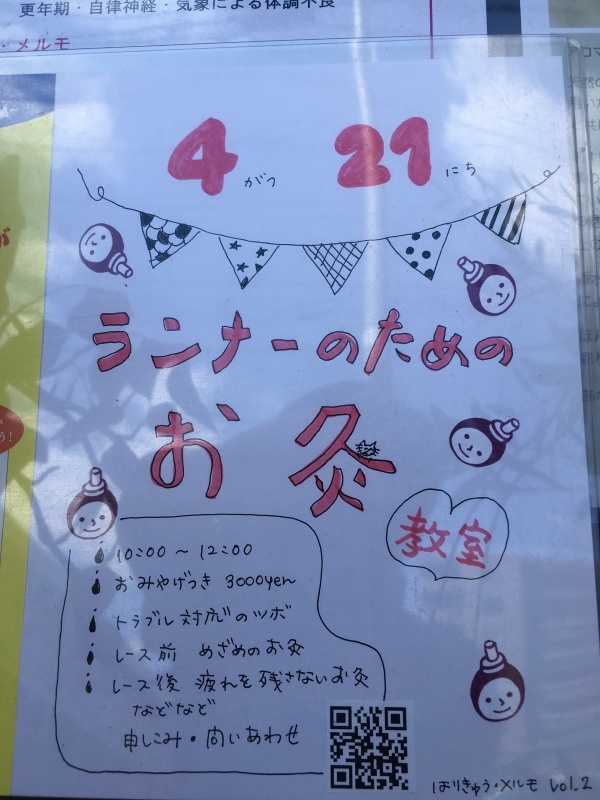 更年期・自律神経・気象による体調不良
・メルモ
4がつ 29にち
ランナーのための
お灸
教室
10:00 ~ 12:00
おみやげつき 3000yen
トラブル対応のツボ
レース前 めざめのお灸
レース後 疲れを残さないお灸
などなど
申しこみ・問いあわせ
はりきゅう・メルモ vol.2